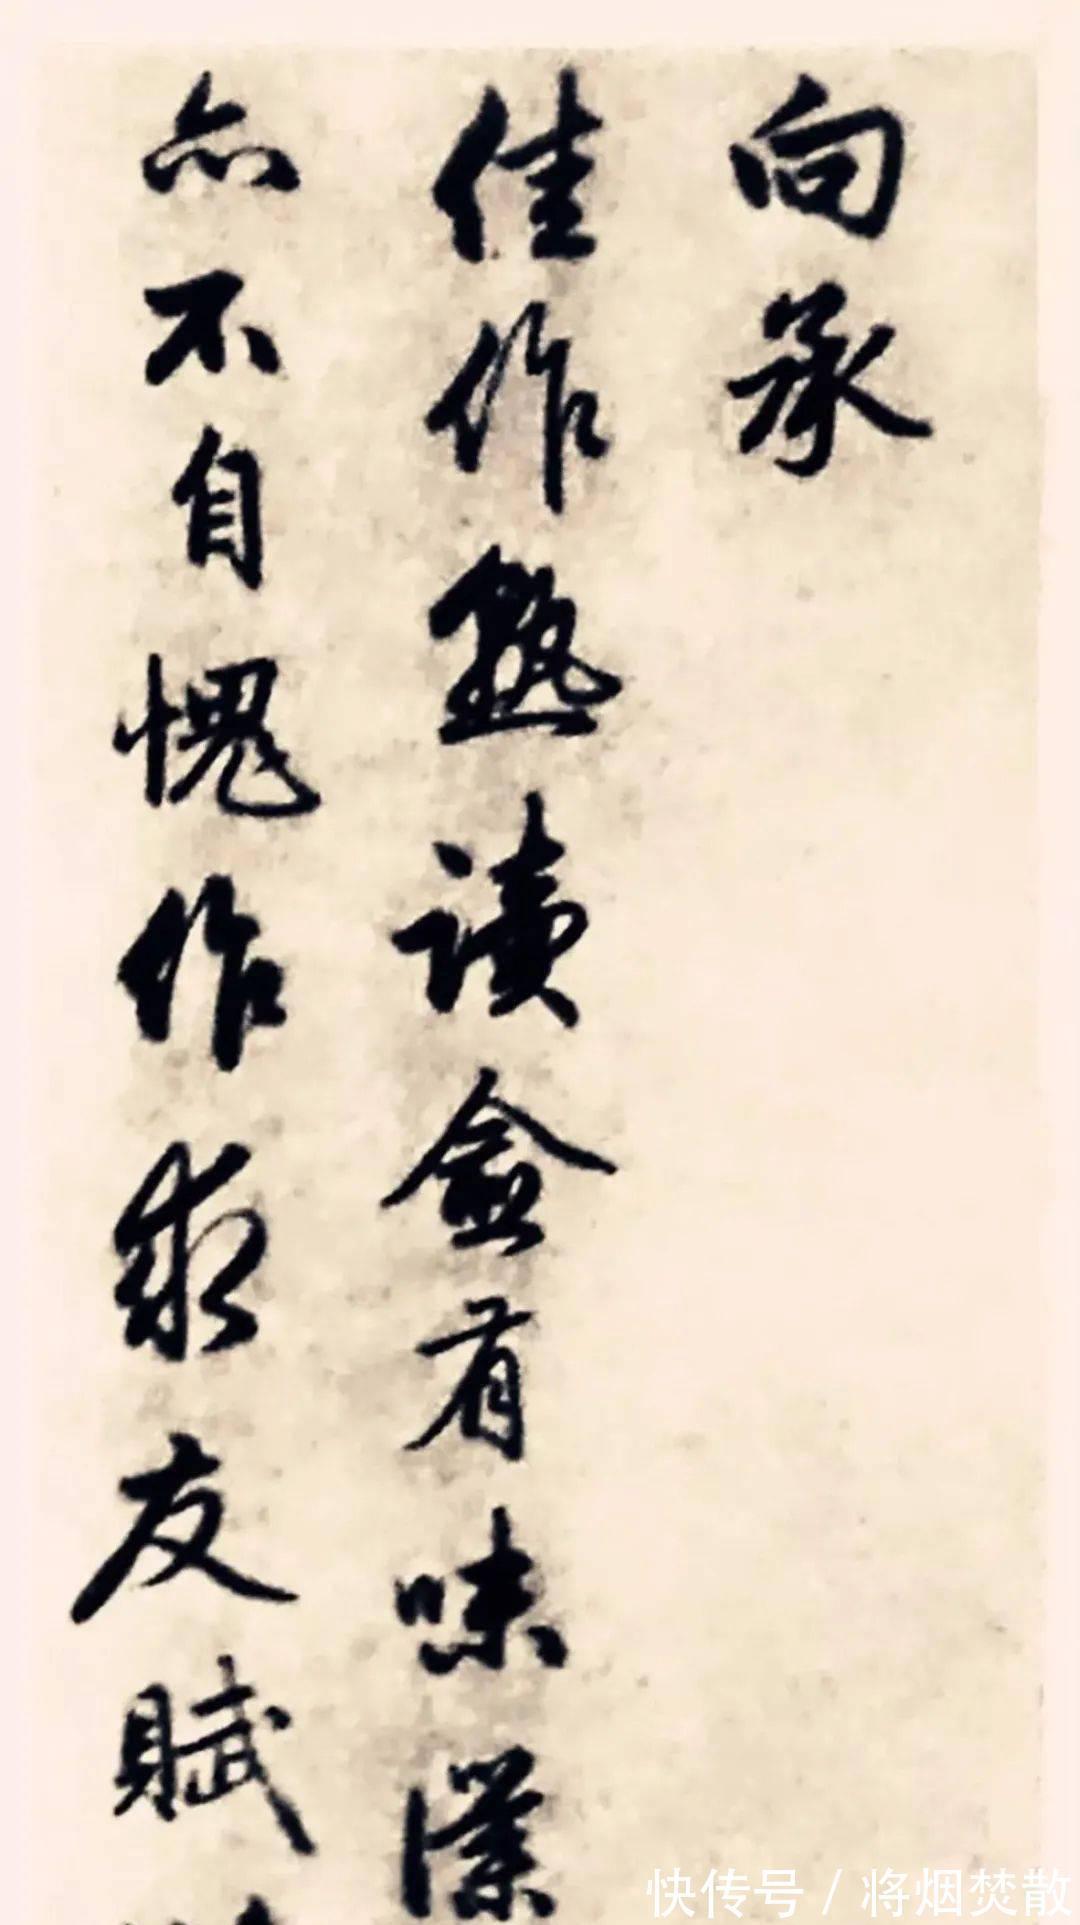 向承
佳作熟读益有味深
亦不自愧作求友赋
快传号 / 将烟焚散